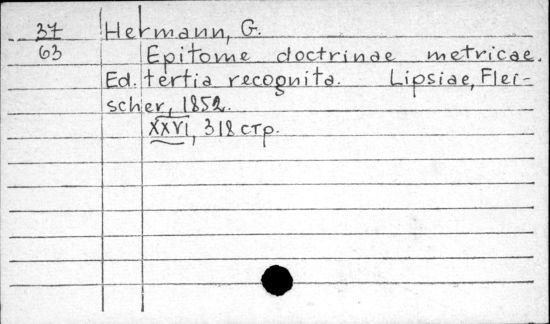 37 Hermann, G.
63 Epitome doctrinae metricae.
Ed. tertia recognita. Lipsiae, Flei-
scher, 1852.
XXVI, 318 стр.